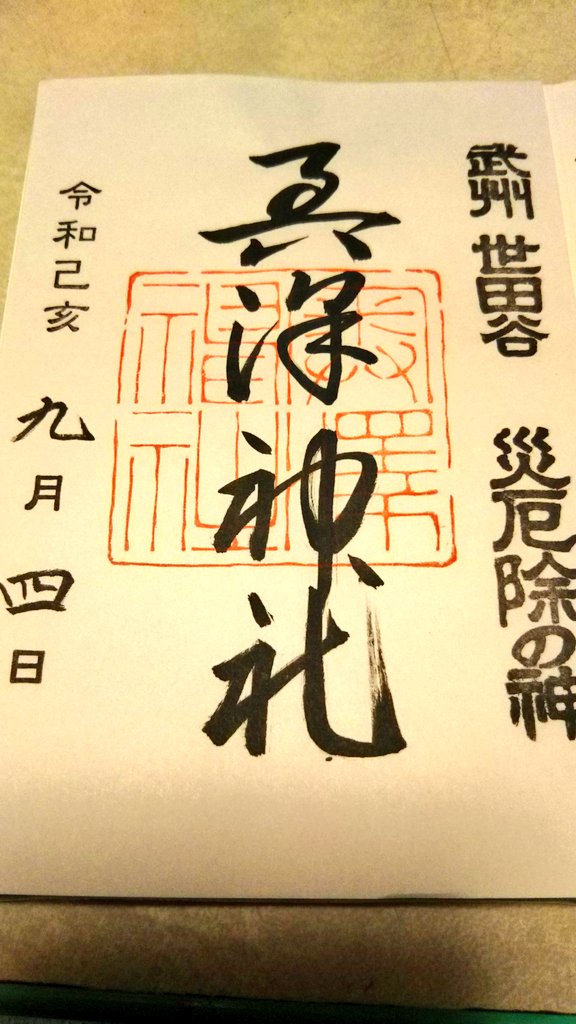 武州 世田谷 災厄除の神
奥澤神社
令和己亥 九月 四日